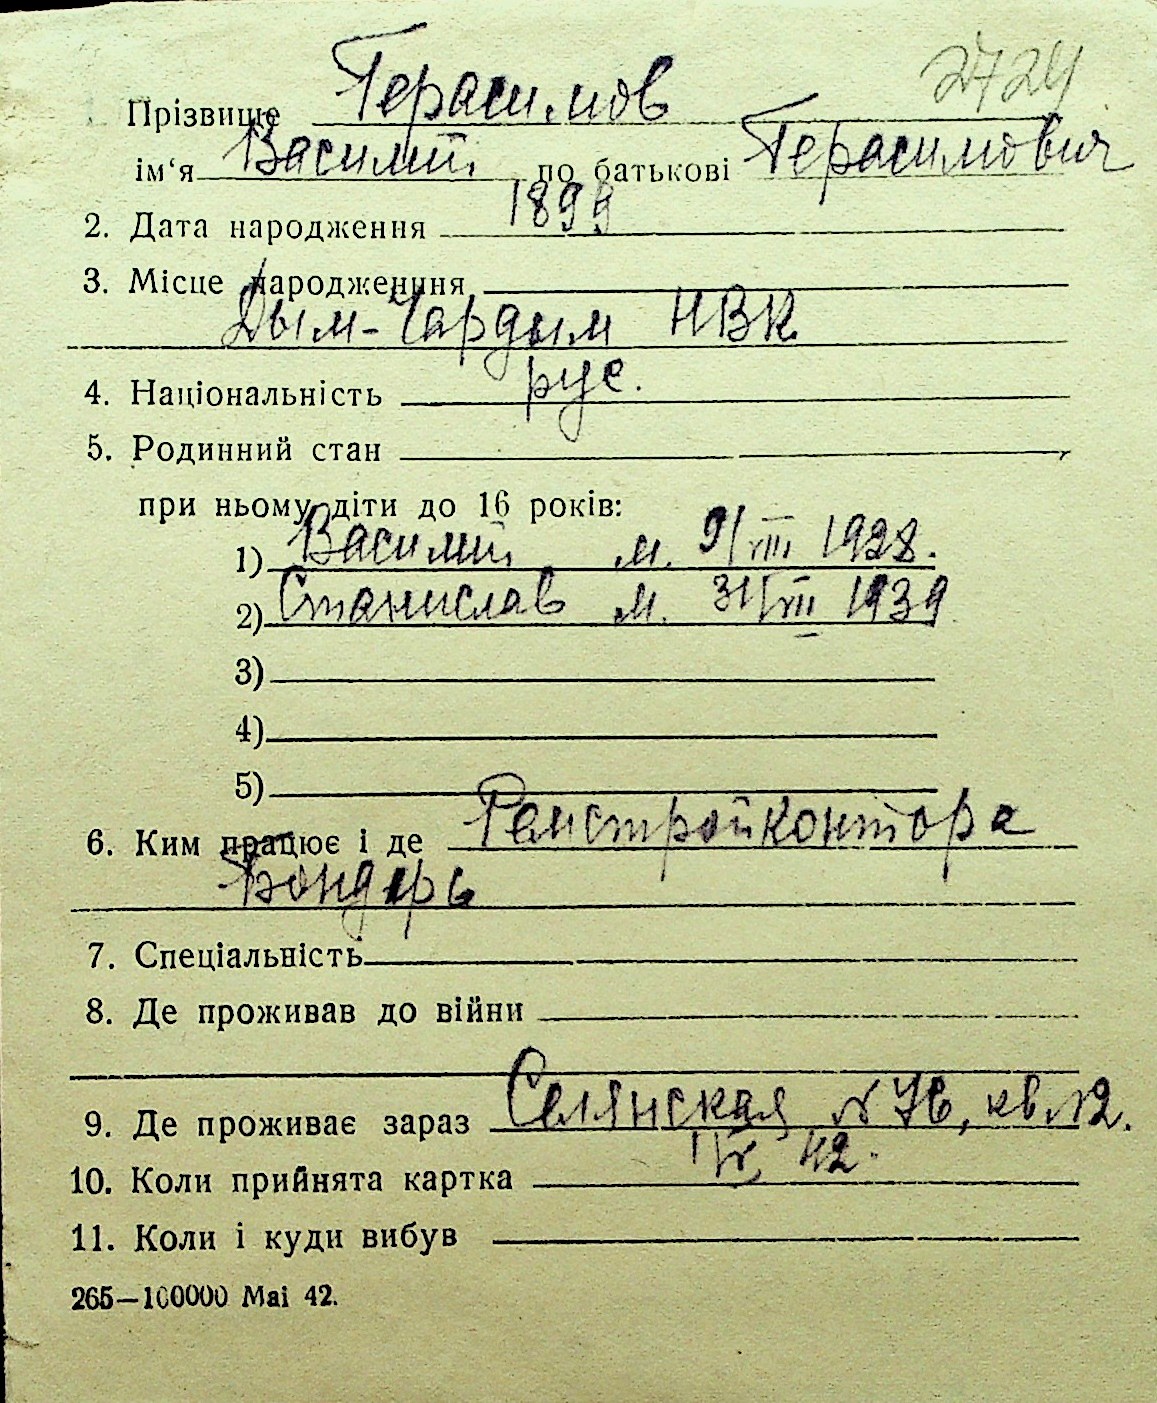 2724
Прізвище Герасимов
ім‘я Василий по батькові Герасимович
2. Дата народження 1899
3. Місце народженння
Дым-Чардым НВК
4. Національність рус.
5. Родинний стан
при ньому діти до 16 років:
1) Василий м. 9/VIII 1928.
2) Станислав м. 31/VII 1939
3)
4)
5)
6. Ким працює і де Ремстройконтора
Бондарь
7. Спеціальність
8. Де проживав до війни
9. Де проживає зараз Селянская № 76, кв №2.
10. Коли прийнята картка 42.
11. Коли і куди вибув
265—100000 Mai 42.